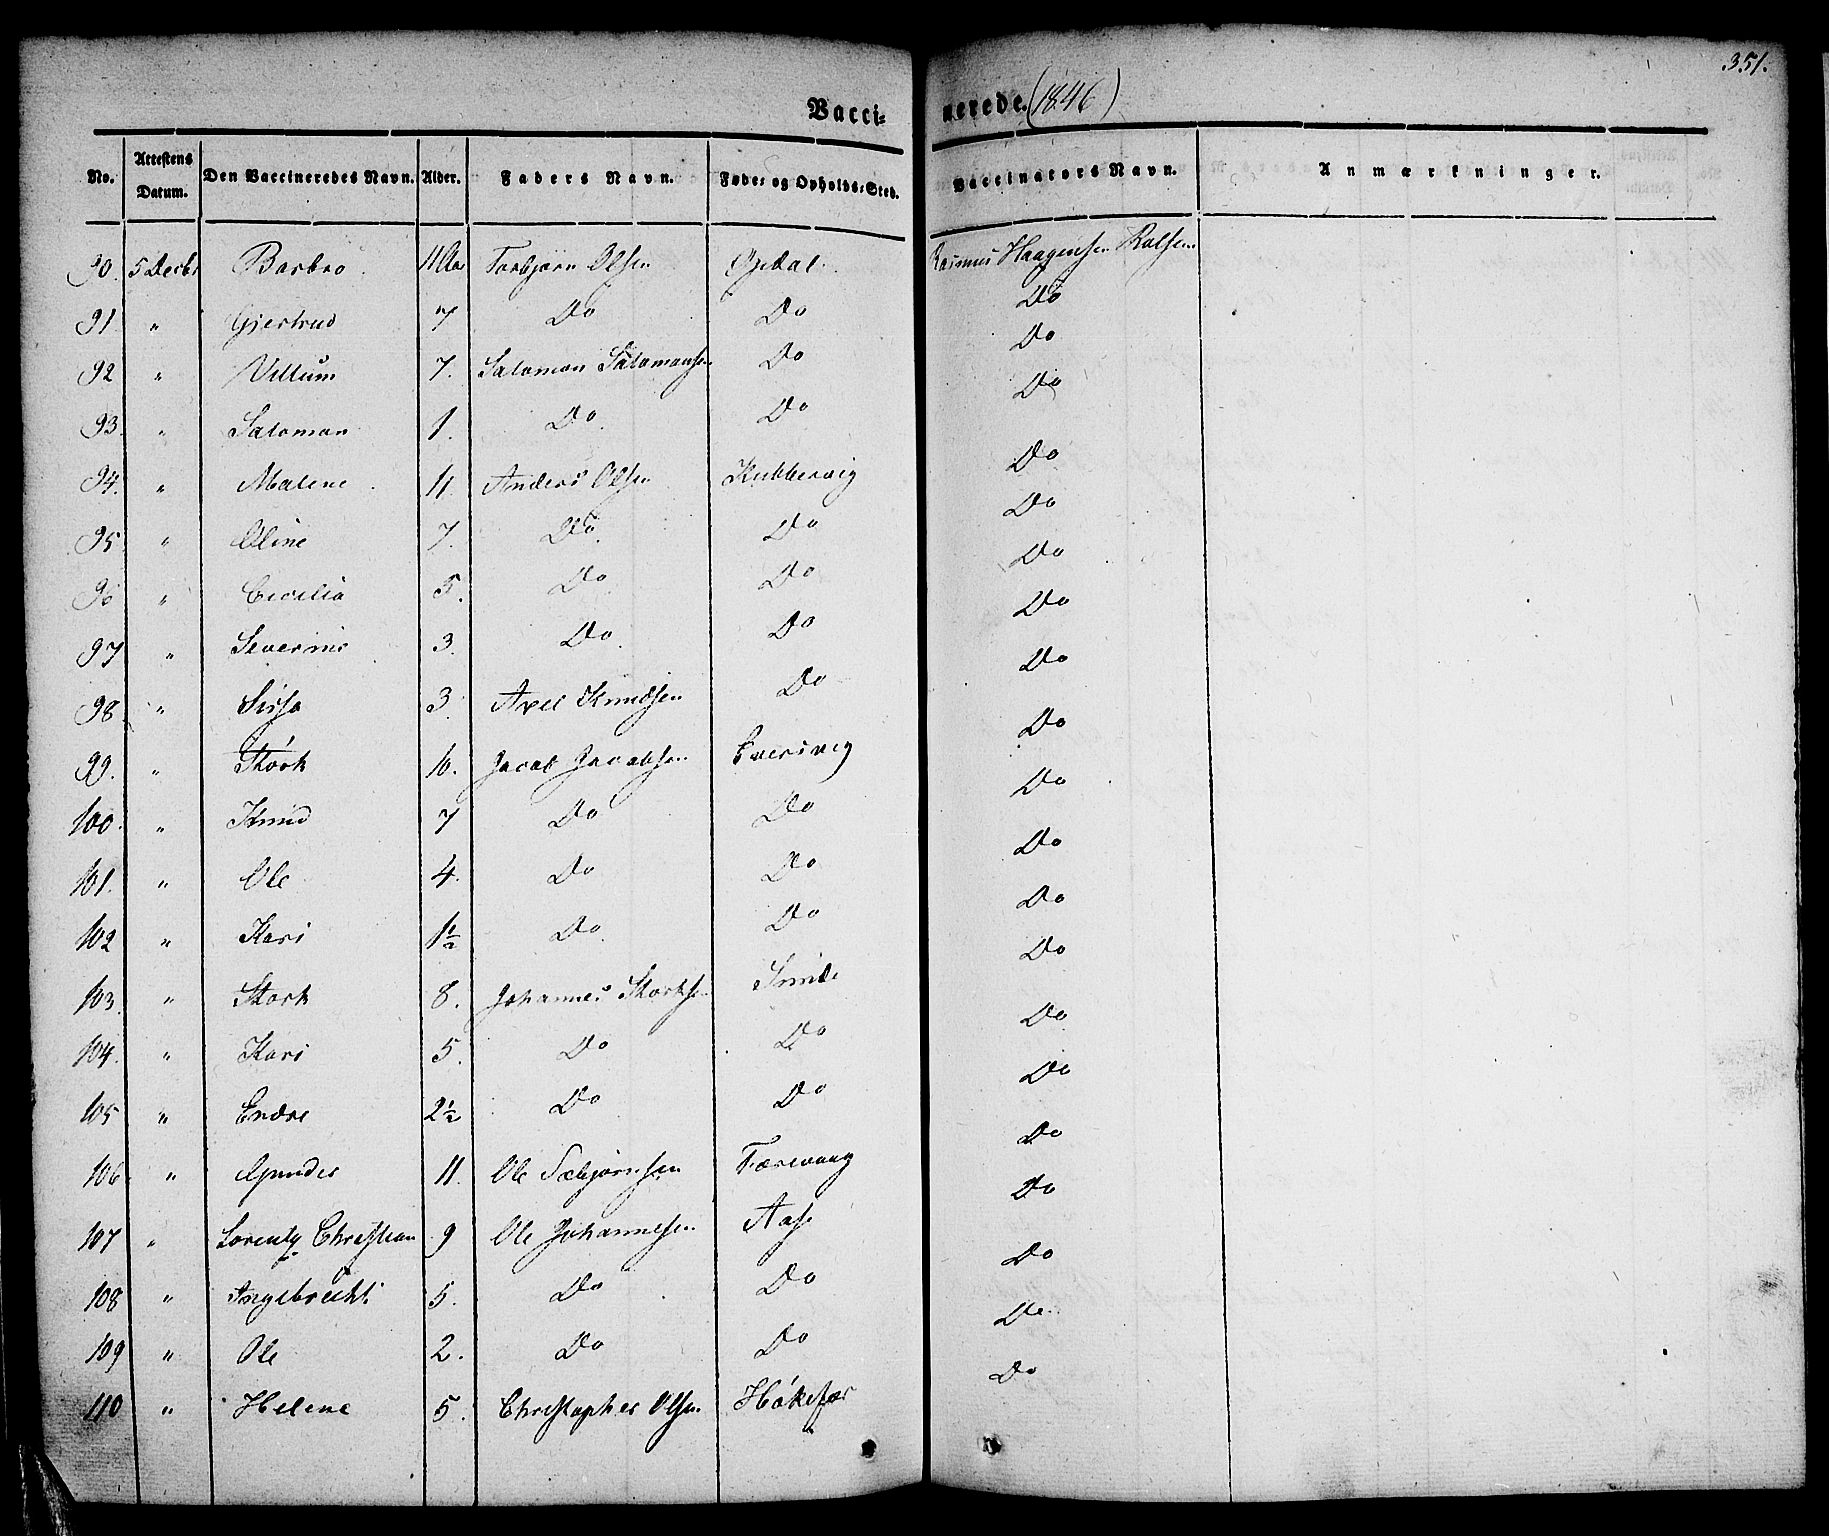 351.
Vacci- nerede. (1846)
No. Attestens Datum. Den Vaccineredes Navn. Alder. Faders Navn. Føde- og Opholds-Sted. Vaccinators Navn. Anmærkninger.
90. 5 Decbr Barbro 11 Aar Torbjørn Olsen Opdal Rasmus Haagensen Rolfsen
91. " Gjertrud 7 Do Do Do
92 " Villum 7. Salomon Salomonsen Do Do
93. " Salomon 1. Do Do Do
94. " Malene 11. Anders Olsen Kubbervig Do
95. " Oline 7. Do Do Do
96 " Cecilia 5. Do Do Do
97 " Severine 3. Do Do Do
98. " Sissa 3. Axel Knudsen Do Do
99. " Størk 10. Jacob Jacobsen Do
100. " Knud 7 Do Do Do
101. " Ole 4. Do Do Do
102 " Kari 1½ Do Do Do
103. " Størk 8. Johannes Størksen Do
104. " Kari 5. Do Do Do
105 " Endre 2½ Do Do Do
106. " 11. Ole Sæbjørnsen Færevaag Do
107 " Lorentz Christian 9 Ole Johannesen Aase Do
108 " Ingebrecht 5. Do Do Do
109 " Ole 2. Do Do Do
110 " Helene 5. Christopher Olsen Do